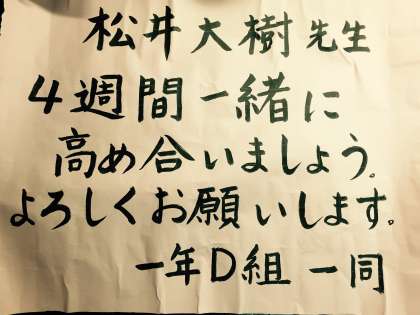 松井大樹先生
4週間一緒に
高め合いましょう。
よろしくお願いします。
一年D組一同